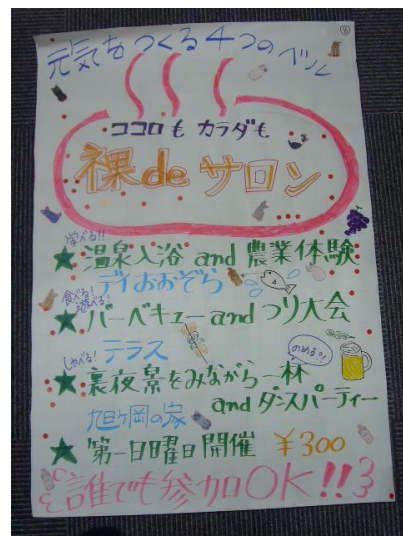 ⑧
元気をつくる4つのベンレ
ココロも カラダも
裸deサロン
学べる!!
★温泉入浴 and 農業体験
デイおおぞら
食べる!
遊べる!
★バーベキュー and つり大会
しゃべる! テラス
のめる○!
★裏夜景をみながら一杯
and ダンスパーティー
旭ヶ岡の家
★第一日曜日開催 ¥300
誰でも参加OK!!